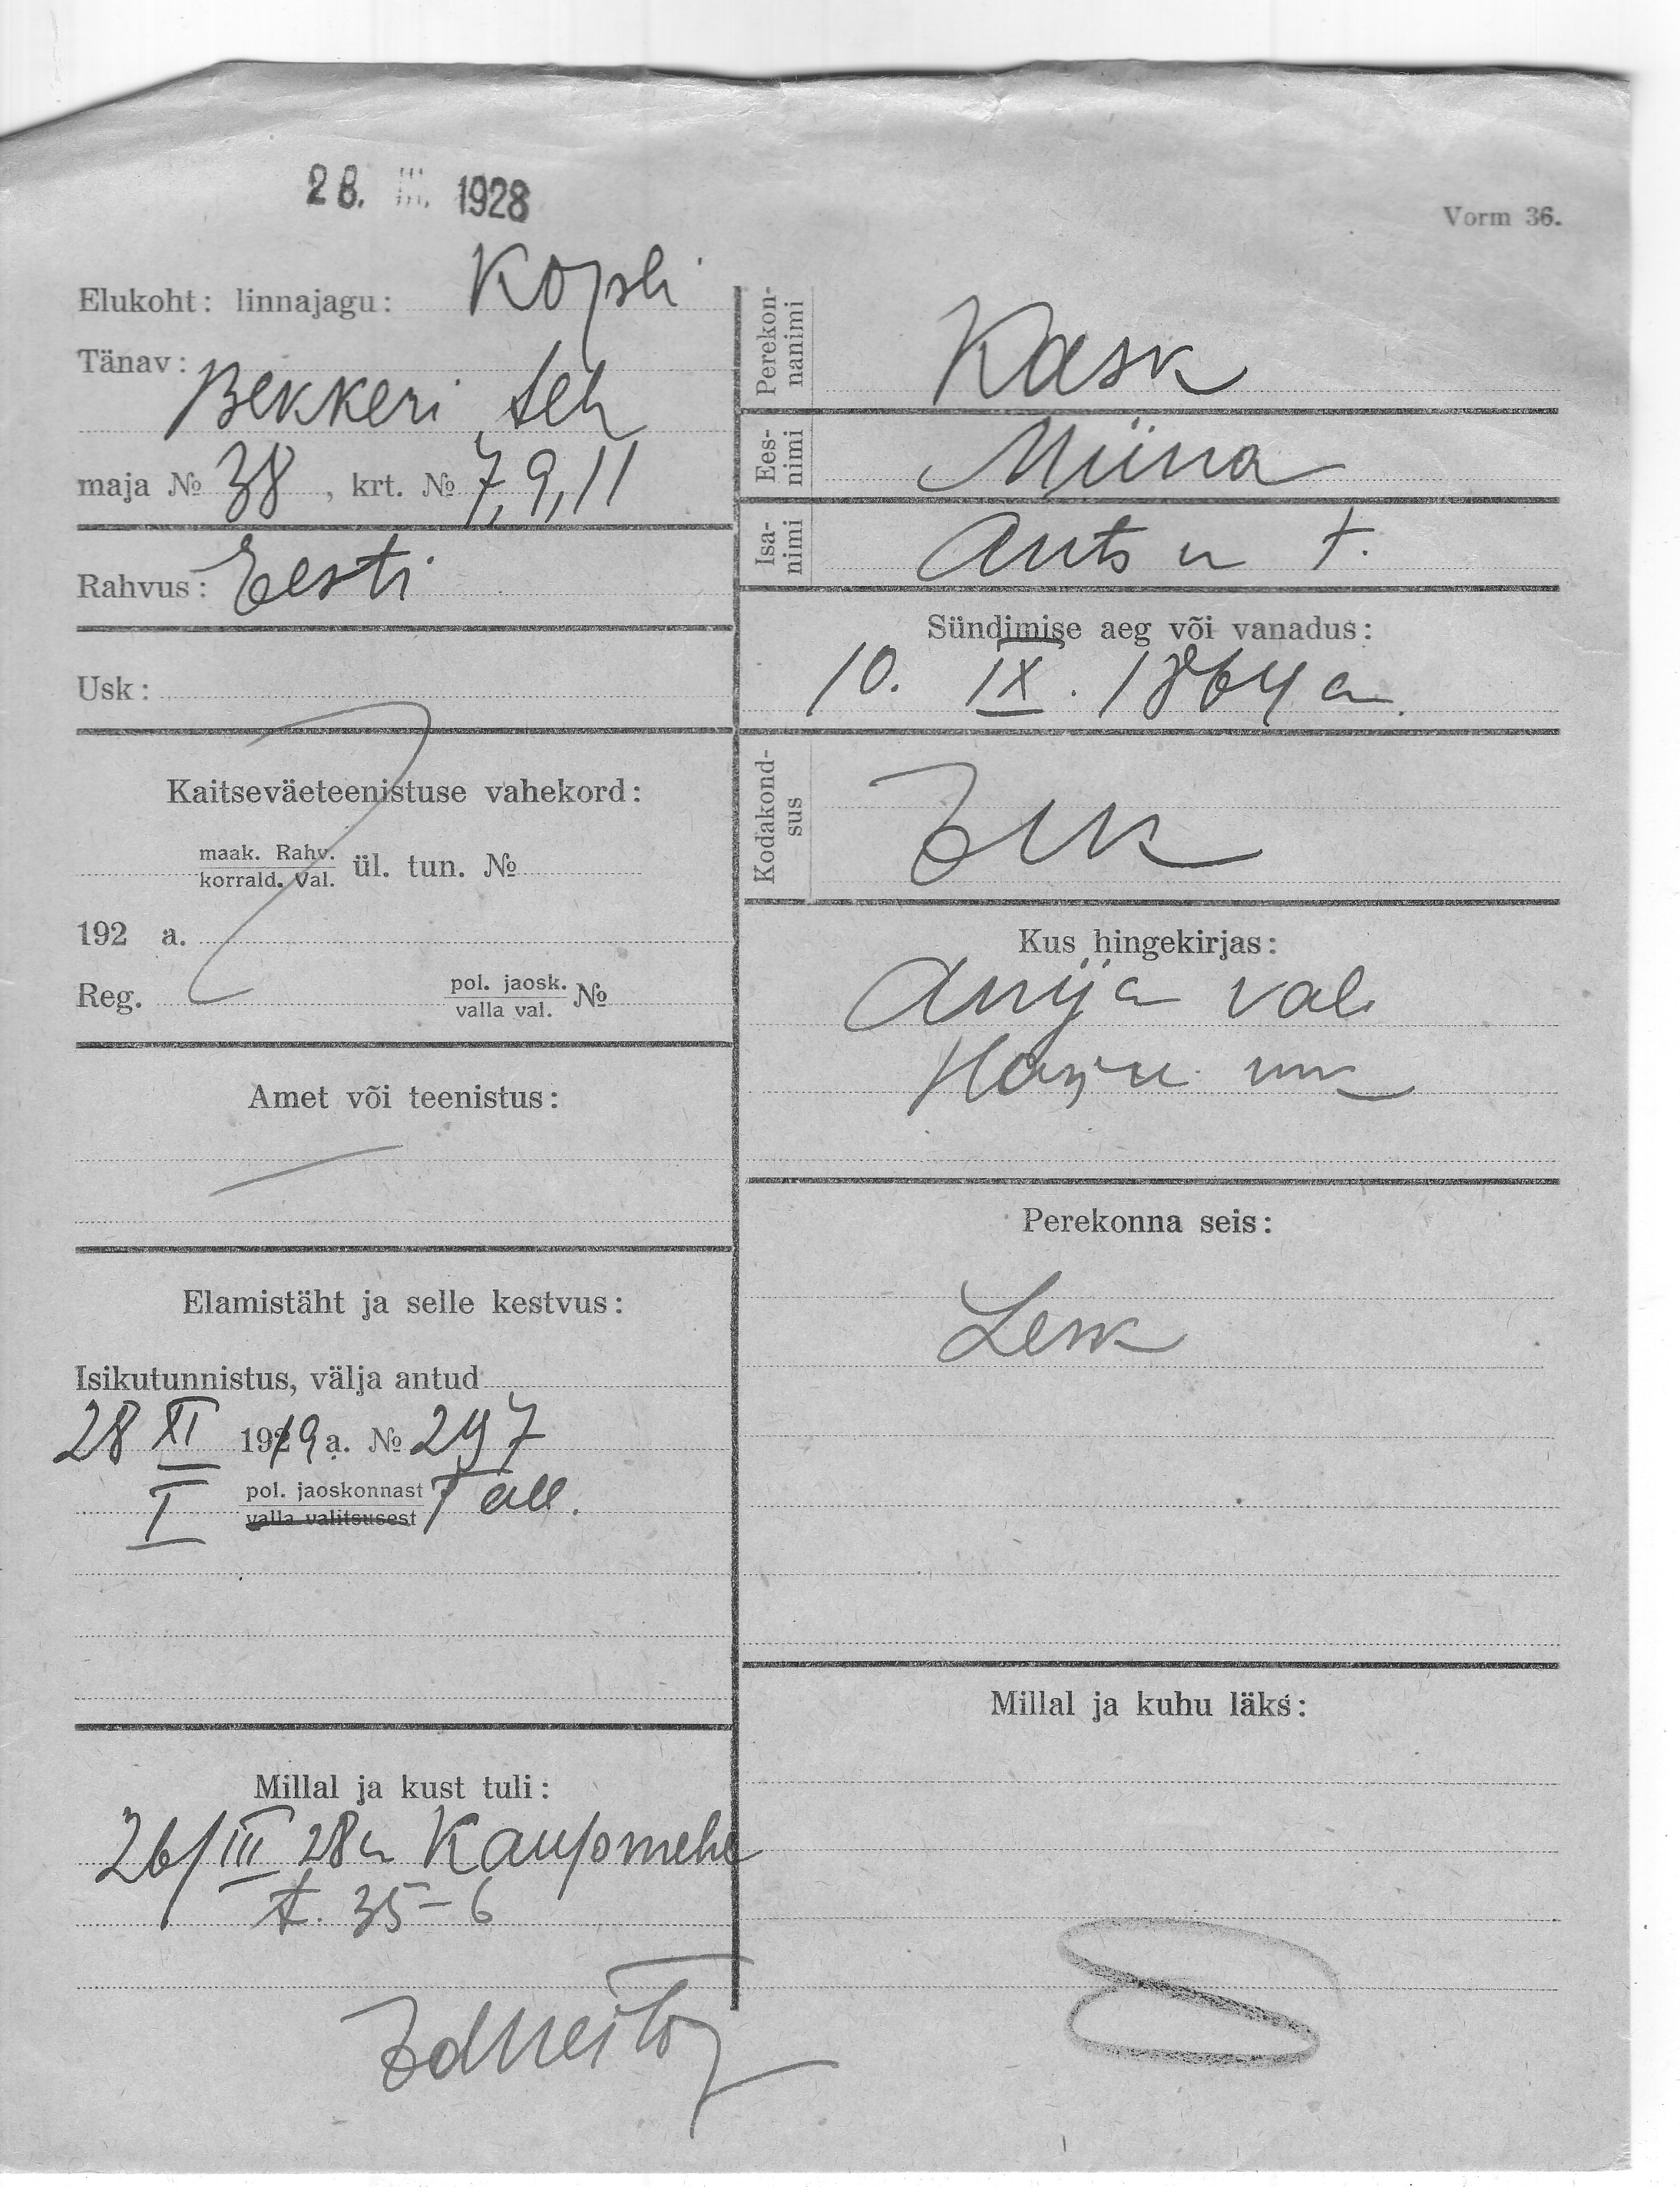 28. III. 1928
Vorm 36.
Elukoht: linnajagu: Kopli
Tänav:
Bekkeri teh
maja № 38, krt. № 7, 9, 11
Rahvus: Eesti
Usk:
Kaitseväeteenistuse vahekord:
maak. Rahv.
korrald. Val. ül. tun. №
192 a.
Reg. pol. jaosk.
valla val. №
Amet või teenistus:
Elamistäht ja selle kestvus:
Isikutunnistus, välja antud
28 XI 1919 a. № 297
I pol. jaoskonnast Tall.
valla valitsusest
Millal ja kust tuli:
26/III 28 a Kaupmehe
t. 35-6
Perekon-
nanimi
Kask
Ees-
nimi
Miina
Isa-
nimi
Ants u t.
Sündimise aeg või vanadus:
10. IX. 1864 a.
Kodakond-
sus
Kus hingekirjas:
Anija val.
Harju mk
Perekonna seis:
Lesk
Millal ja kuhu läks: